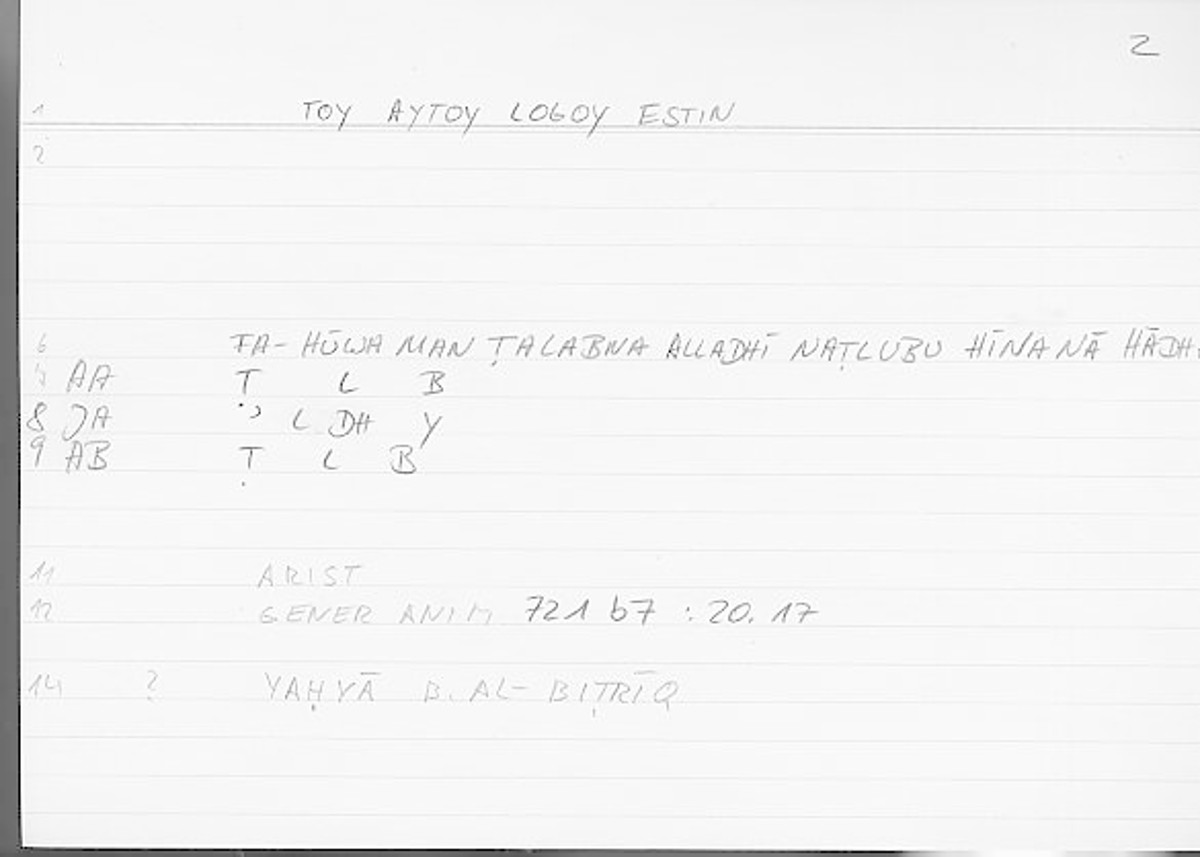 2
1 TOY AYTOY LOGOY ESTIN
2
6 FA- HŪWA MAN ṬALABNA ALLADHĪ NAṬLUBU HĪNA NĀ HĀDH
7 AA T L B
8 JA L DH Y
9 AB Ṭ L B
11 ARIST
12 GENER ANIM 721 b7 : 20. 17
14 ? YAḤYĀ B. AL- BIṬRĪQ